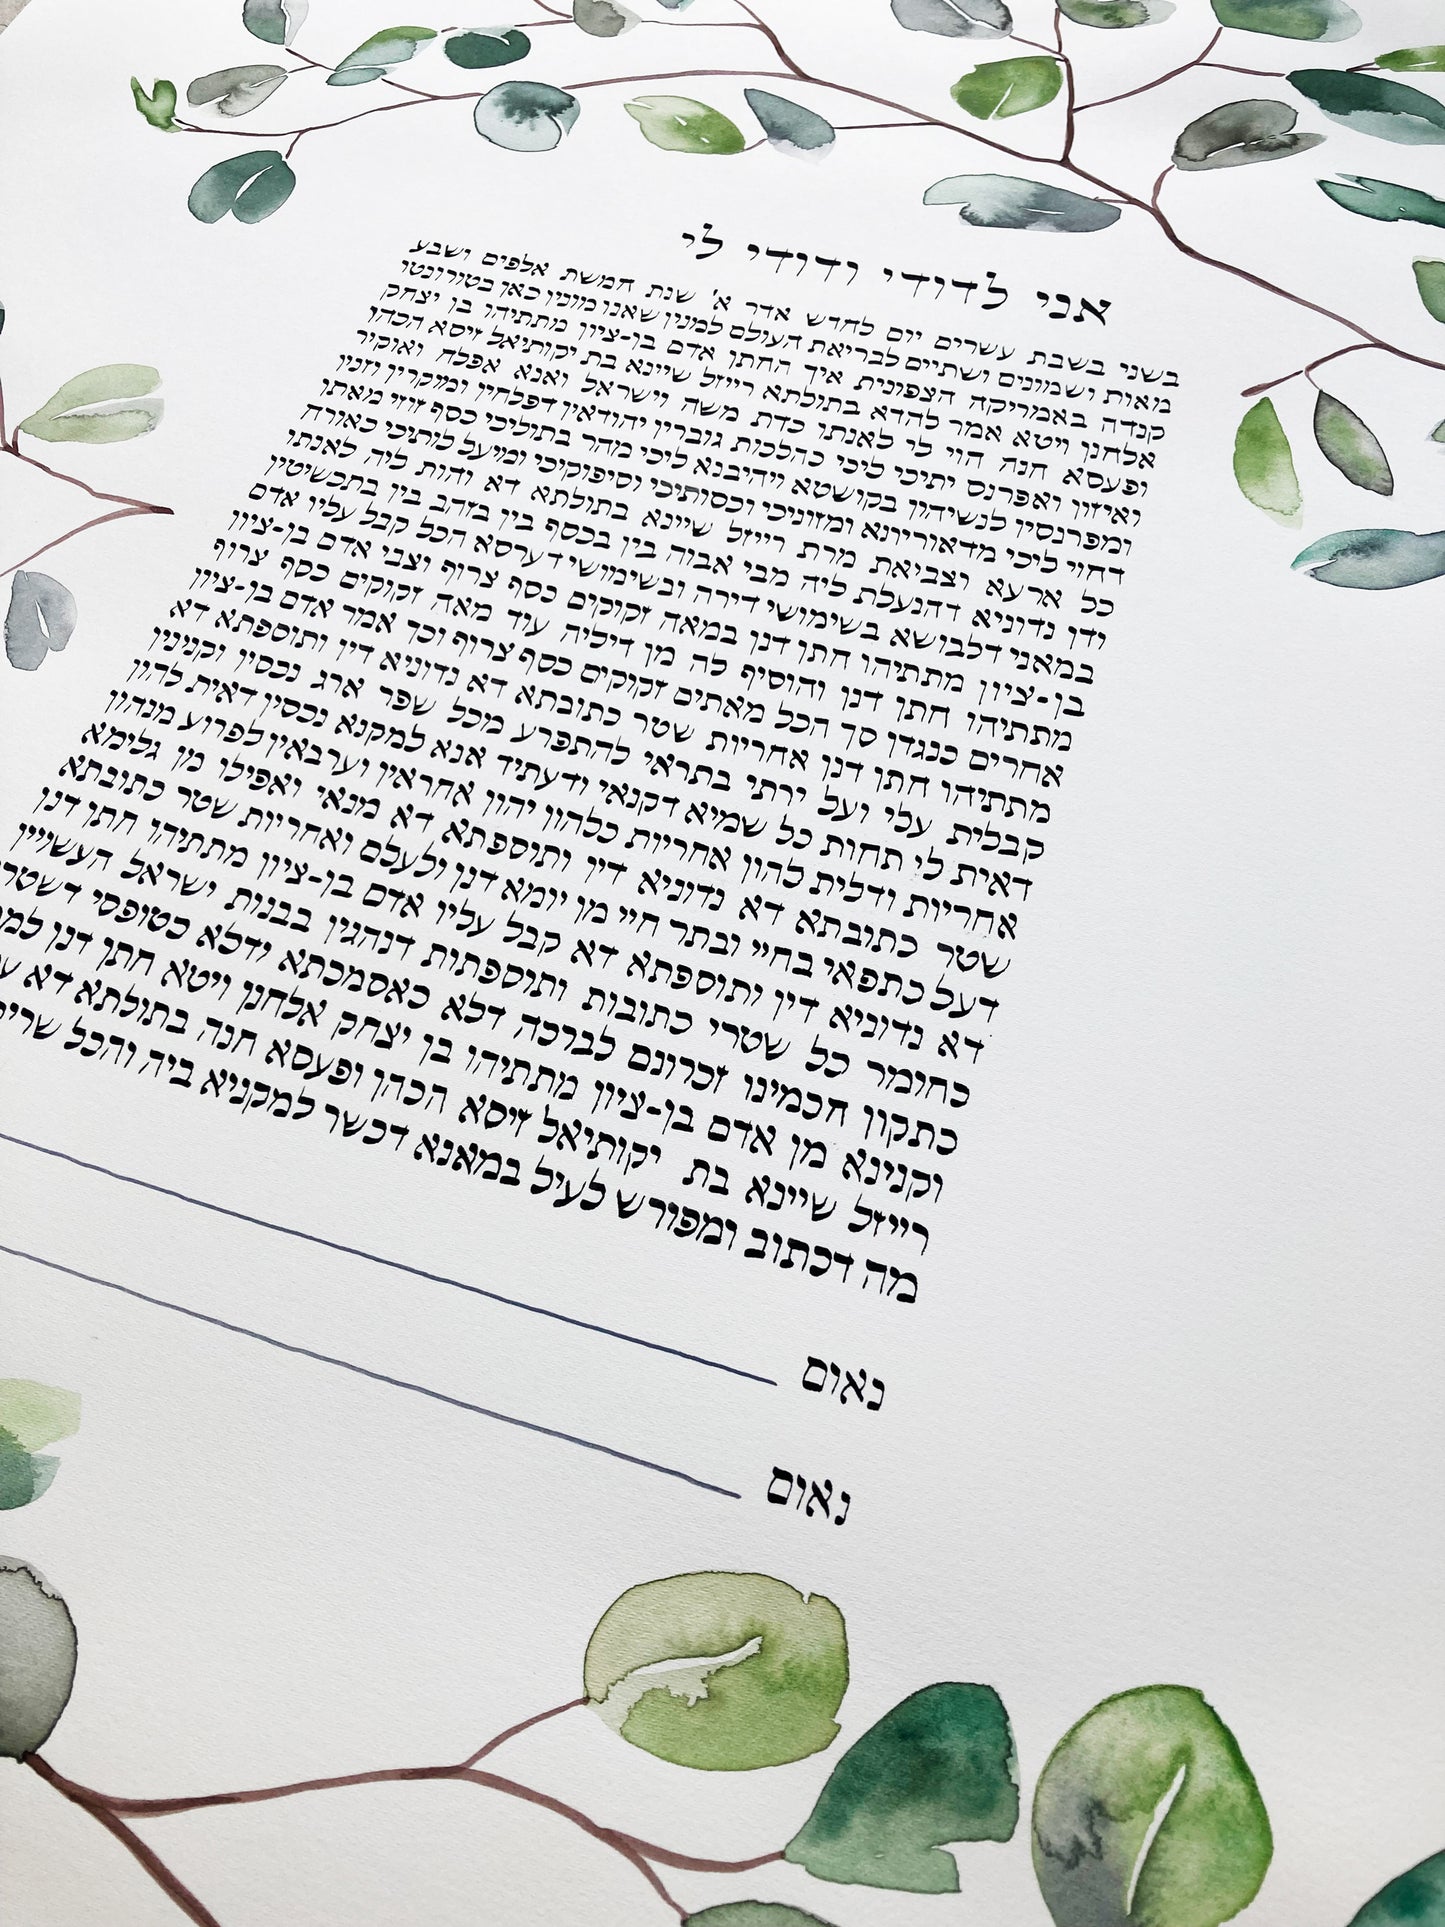 אני לדודי ודודי לי
בשני בשבת עשרים יום לחדש אדר א' שנת חמשת אלפים ושבע
מאות ושמונים ושתיים לבריאת העולם למנין שאנו מונין כאן בטורונטו
קנדה באמריקה הצפונית איך החתן אדם בן-ציון מתתיהו בן יצחק
אלחנן ויטא אמר להדא בתולתא רייזל שיינא בת יקותיאל זיסא הכהן
ופעסא חנה הוי לי לאנתו כדת משה וישראל ואנא אפלח ואוקיר
ואיזון ואפרנס יתיכי ליכי כהלכות גוברין יהודאין דפלחין ומוקרין וזנין
ומפרנסין לנשיהון בקושטא ויהיבנא ליכי מהר בתוליכי כסף זוזי מאתן
דחוי ליכי מדאוריתא ומזוניכי וכסותיכי וסיפוקיכי ומיעל לותיכי כאורח
כל ארעא וצביאת מרת רייזל שיינא בתולתא דא והות ליה לאנתו
ודן נדוניא דהנעלת ליה מבי אבוה בין בכסף בין בזהב בין בתכשיטין
במאני דלבושא בשימושי דירה ובשימושי דערסא הכל קבל עליו אדם
בן-ציון מתתיהו חתן דנן במאה זקוקים כסף צרוף וצבי אדם בן-ציון
מתתיהו חתן דנן והוסיף לה מן דיליה עוד מאה זקוקים כסף צרוף
אחרים כנגדן סך הכל מאתים זקוקים כסף צרוף וכך אמר אדם בן-ציון
מתתיהו חתן דנן אחריות שטר כתובתא דא נדוניא דין ותוספתא דא
קבלית עלי ועל ירתי בתראי להתפרע מכל שפר ארג נכסין וקנינין
דאית לי תחות כל שמיא דקנאי ודעתיד אנא למקנא נכסין דאית להון
אחריות ודלית להון אחריות כלהון יהון אחראין וערבאין לפרוע מנהון
שטר כתובתא דא נדוניא דין ותוספתא דא מנאי ואפילו מן גלימא
דעל כתפאי בחיי ובתר חיי מן יומא דנן ולעלם ואחריות שטר כתובתא
דא נדוניא דין ותוספתא דא קבל עליו אדם בן-ציון מתתיהו חתן דנן
כחומר כל שטרי כתובות ותוספתות דנהגין בבנות ישראל העשויין
כתקון חכמינו זכרונם לברכה דלא כאסמכתא ודלא כטופסי דשטרי
וקנינא מן אדם בן-ציון מתתיהו בן יצחק אלחנן ויטא חתן דנן
רייזל שיינא בת יקותיאל זיסא הכהן ופעסא חנה בתולתא דא
מה דכתוב ומפורש לעיל במאנא דכשר למקניא ביה והכל
נאום
נאום